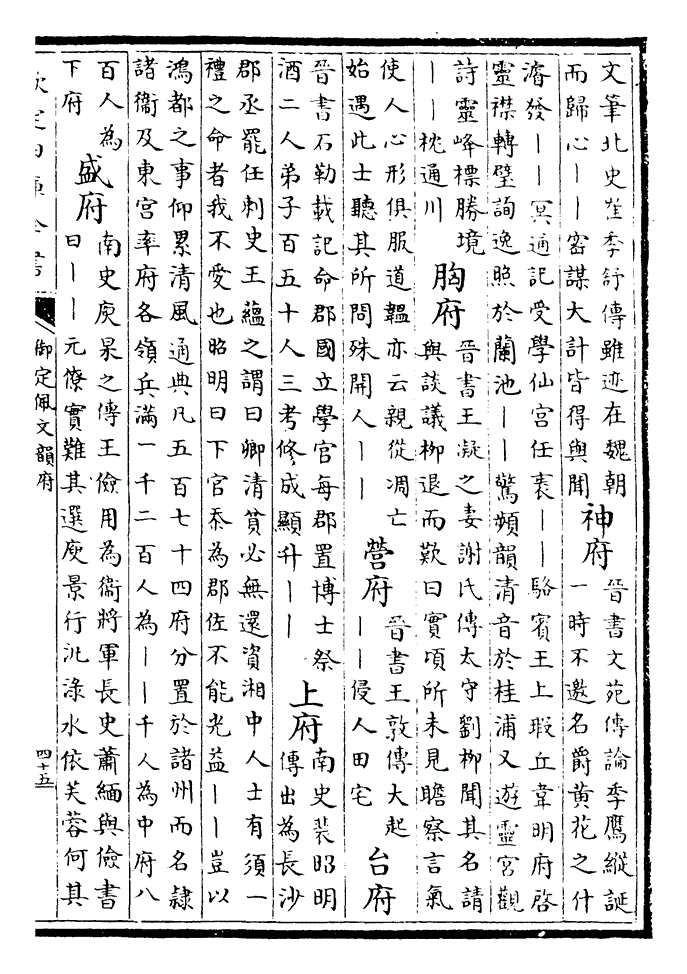 文筆北史崔季舒傳雖迹在魏朝
而歸心——宻謀大計皆得與聞
神府
晉書文苑傳論季鷹縱誕
一時不邀名爵黄花之什
濬發——冥通記受學仙宫任袠——駱賓王上瑕丘韋明府啓
靈襟轉璧詢逸照於蘭池——驚頻韻清音於桂浦又遊靈宫觀
詩靈峰標勝境
——枕通川
胸府
晉書王凝之妻謝氏傳太守劉柳聞其名請
與談議柳退而歎曰實頃所未見瞻察言氣
使人心形俱服道韞亦云親從凋亡
始遇此士聽其所問殊開人——
營府
晉書王敦傳大起
——侵人田宅
台府
晉書石勒載記命郡國立學官每郡置博士祭
酒二人弟子百五十人三考修成顯升——
上府
南史裴昭明
傳出為長沙
郡丞罷任刺史王蘊之謂曰卿清貧必無還資湘中人士有須一
禮之命者我不愛也昭明曰下官忝為郡佐不能光益——豈以
鴻都之事仰累清風通典凡五百七十四府分置於諸州而名隸
諸衞及東宫率府各領兵滿一千二百人為——千人為中府八
百人為
下府
盛府
南史庾杲之傳王儉用為衞將軍長史蕭緬與儉書
曰——元僚實難其選庾景行汎淥水依芙蓉何其
欽定四庫全書
御定佩文韻府
四十五